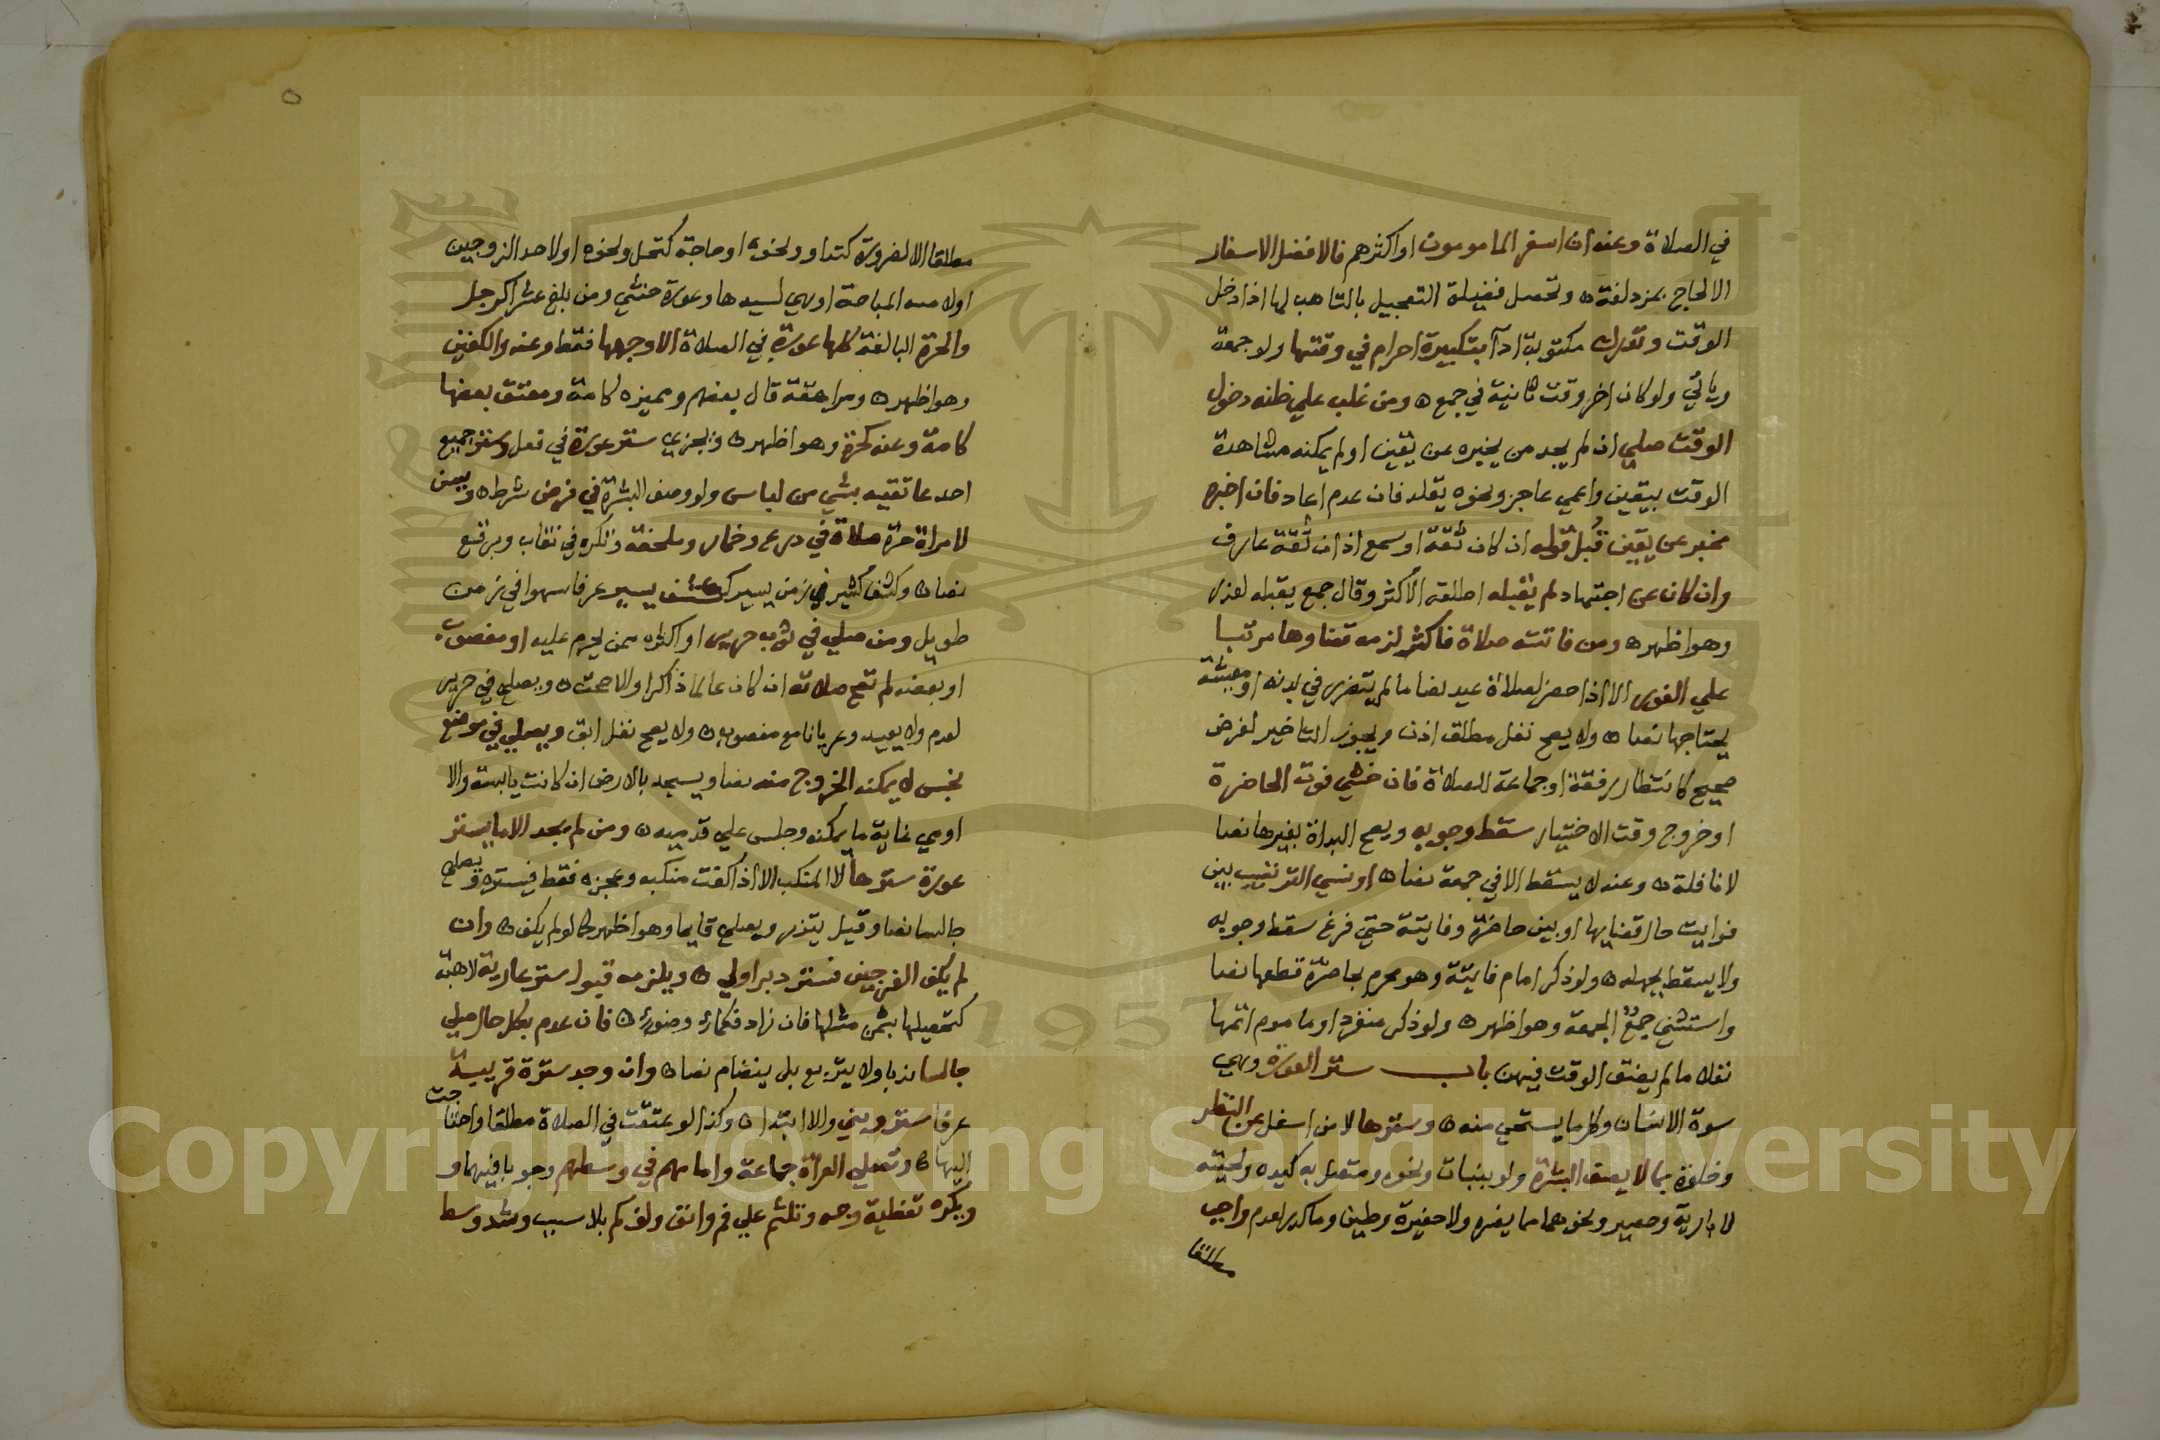 في الصلاة وعنه ان اسفر المامومون او اكثرهم فالافضل الاسفار
الا لحاج بمزدلفة ه وتحصل فضيلة التعجيل بالتاهب لها اذا دخل
الوقت وتدرك مكتوبة اداً بتكبيرة احرام في وقتها ولو جمعة
وياتي ولو كان اخر وقت ثانية في جمع ه ومن غلب علي ظنه دخول
الوقت صلي ان لم يجد من يخبره عن يقين او لم يمكنه مشاهدة
الوقت بيقين واعمي عاجز ونحوه يقلد فان عدم اعاد فان اخبره
مخبر عن يقين قُبل قوله ان كان ثقة او سمع اذان ثقة عارف
وان كان عن اجتهاد لم يقبله اطلقه الاكثر وقال جمع يقبله لعذر
وهو اظهر ه ومن فاتته صلاة فاكثر لزمه قضاوها مرتبا
علي الفور الا اذا حضر لصلاة عيد نصا ما لم يتضرر في بدنه او معيشة
يحتاجها نصا ه ولا يصح نفل مطلق اذن ويجوز التاخير لغرض
صحيح كانتظار رفقة او جماعة للصلاة فان خشي فوت الحاضرة
او خروج وقت الاختيار سقط وجوبه ويصح البداة بغيرها نصا
لا نافلة ه وعنه لا يسقط الا في جمعة نصا ه او نسي الترتيب بين
فوايت حال قضايها او بين حاضرة وفايتة حتي فرغ سقط وجوبه
ولا يسقط بجهله ه ولو ذكر امام فايتة وهو محرم بحاضرة قطعها نصا
واستثني جمعٌ الجمعة وهو اظهر ه ولو ذكر منفرد او ماموم اتمها
نفلا ما لم يضق الوقت فيهن باب ستر العورة وهي
سوة الانسان وكل ما يستحي منه ه وسترها لا من اسفل عن النظر
وخلوة بما لا يصف البشرة ولو بنبات ونحوه ومتصل به كيده ولحيته
لا بارية وحصير ونحوهما مما يضره ولا حفيرة وطين وما كدر لعدم واجب
مطلقا
مطلقا الا لضرورة كتداو ونحوه او حاجة كتحمل ونحوه او لاحد الزوجين
او لامته المباحة او هي لسيدها وعورة خنثي ومن بلغ عشرا كرجل
والحرة البالغة كلها عورة في الصلاة الا وجهها فقط وعنه والكفين
وهو اظهر ه ومراهقة قال بعضهم ومميزه كامة ومعتق بعضها
كامة وعنه كحرة وهو اظهر ه ويجزي ستر عورة في نفل وستر جميع
احد عاتقيه بشي من لباس ولو وصف البشرة في فرض شرط ه ويسن
لامراة حرة صلاة في درع وخمار وملحفة وتكره في نقاب وبرقع
نصا ه وكشف كثير في زمن يسير ككشف يسير عرفا سهوا في زمن
طويل ومن صلي في ثوب حرير او اكثره ممن يحرم عليه او مغصوب
او بعضه لم تصح صلاته ان كان عالما ذاكرا والا صحت ه ويصلي في حرير
لعدم ولا يعيد وعريانا مع مغصوب ه ولا يصح نفل ابق ويصلي في موضع
نجس لا يمكنه الخروج منه نصا ويسجد بالارض ان كانت يابسة والا
اومي غاية ما يمكنه وجلس علي قدميه ه ومن لم يجد الا ما يستر
عورة سترها لا المنكب الا اذا كفت منكبه وعجزه فقط فيستره ويصلي
جالسا نصا وقيل يتزر ويصلي قايما وهو اظهر كما لو لم يكف ه وان
لم يكف الفرجين فستر دبر اولي ه ويلزمه قبول ستر عارية لا هبة
كتحصيلها بثمن مثلها فان زاد فكماء وضوء ه فان عدم بكل حال صلي
جالسا ندبا ولا يتربع بل ينضام نصا ه وان وجد سترة قريبة
عرفا ستر وبني والا ابتدا ه وكذا لو عتقت في الصلاة مطلقا واحتاجت
اليها ه وتصلي العراة جماعة وامامهم في وسطهم وجوبا فيهما و
ويكره تغطية وجه وتلثم علي فم وانف ولف كم بلا سبب وشد وسط
Copyright © King Saud University
1957